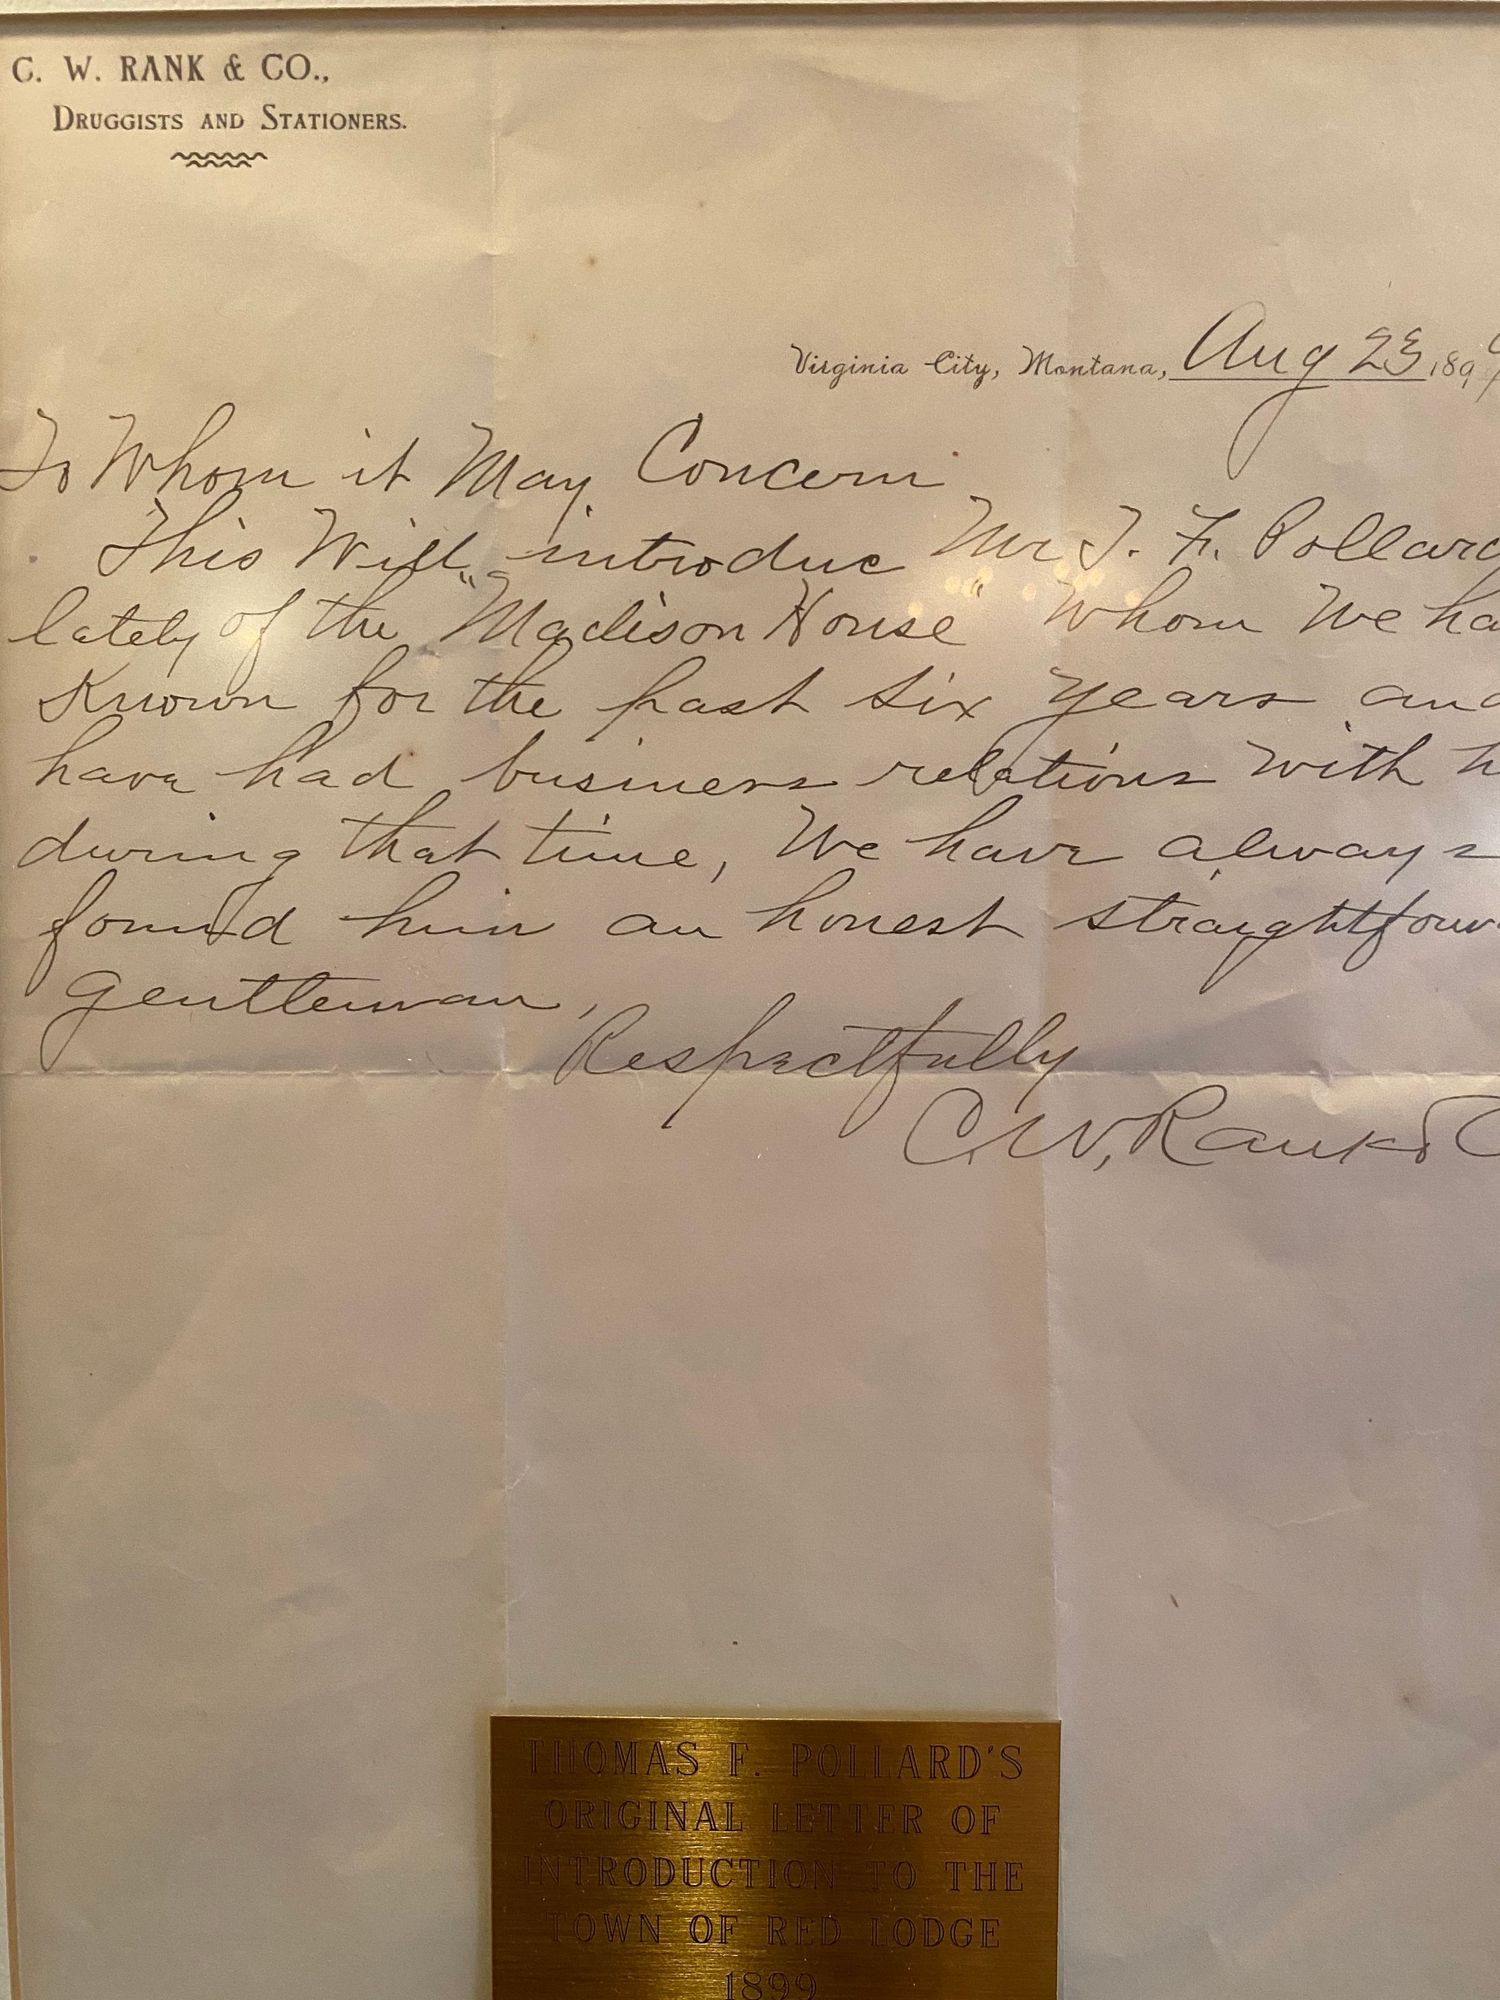 C. W. RANK & CO.,
DRUGGISTS AND STATIONERS.
Virginia City, Montana, Aug 23, 1899
To Whom it May Concern
This Will introduce Mr T. F. Pollard
lately of the "Madison House" Whom We ha
Known for the past six years and
have had business relations with h
during that time, We have always
found him an honest straightforw
gentleman,
Respectfully
C. W. Rank & C
THOMAS F. POLLARD'S
ORIGINAL LETTER OF
INTRODUCTION TO THE
TOWN OF RED LODGE
1899